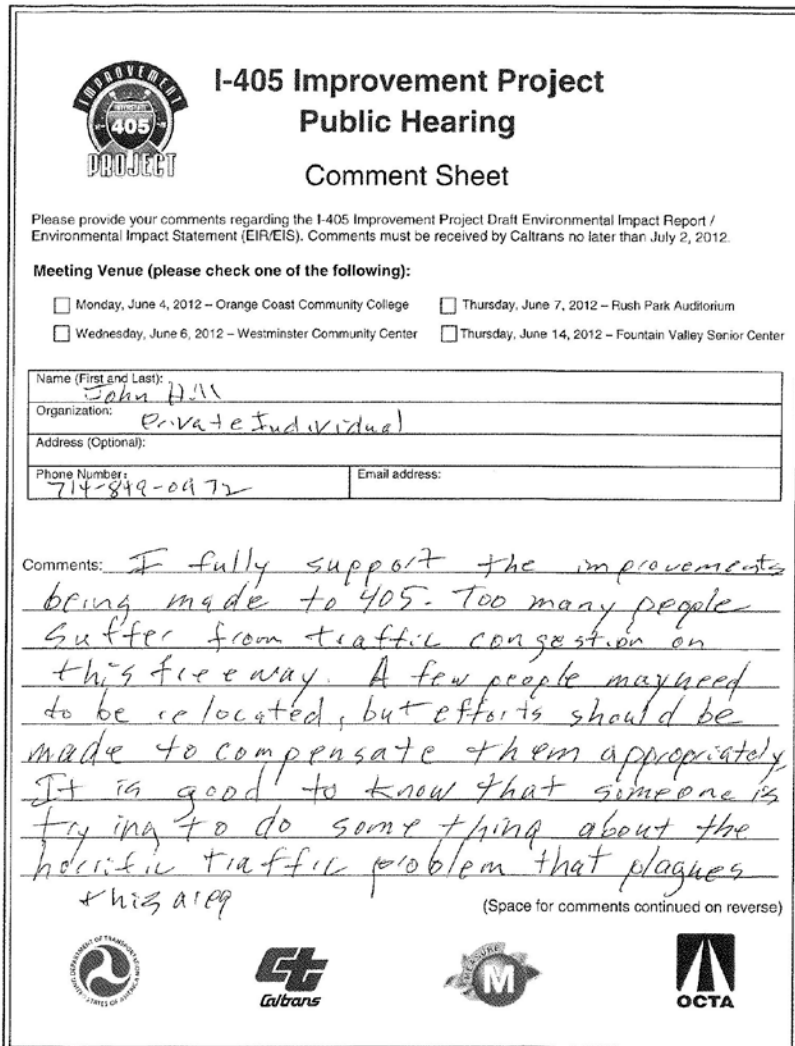 IMPROVEMENT
INTERSTATE
405
PROJECT
I-405 Improvement Project
Public Hearing
Comment Sheet
Please provide your comments regarding the I-405 Improvement Project Draft Environmental Impact Report /
Environmental Impact Statement (EIR/EIS). Comments must be received by Caltrans no later than July 2, 2012.
Meeting Venue (please check one of the following):
Monday, June 4, 2012 – Orange Coast Community College
Thursday, June 7, 2012 – Rush Park Auditorium
Wednesday, June 6, 2012 – Westminster Community Center
Thursday, June 14, 2012 – Fountain Valley Senior Center
Name (First and Last): John Hill
Organization: Private Individual
Address (Optional):
Phone Number: 714-849-0972
Email address:
Comments: I fully support the improvements
being made to 405. Too many people
suffer from traffic congestion on
this freeway. A few people may need
to be relocated, but efforts should be
made to compensate them appropriately.
It is good to know that someone is
trying to do some thing about the
horrific traffic problem that plagues
this area
(Space for comments continued on reverse)
DEPARTMENT OF TRANSPORTATION
UNITED STATES OF AMERICA
Ct
Caltrans
MEASURE
M
OCTA